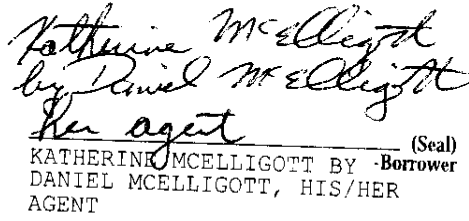 Katherine McElligott
by Daniel McElligott
her agent
(Seal)
KATHERINE MCELLIGOTT BY -Borrower
DANIEL MCELLIGOTT, HIS/HER
AGENT